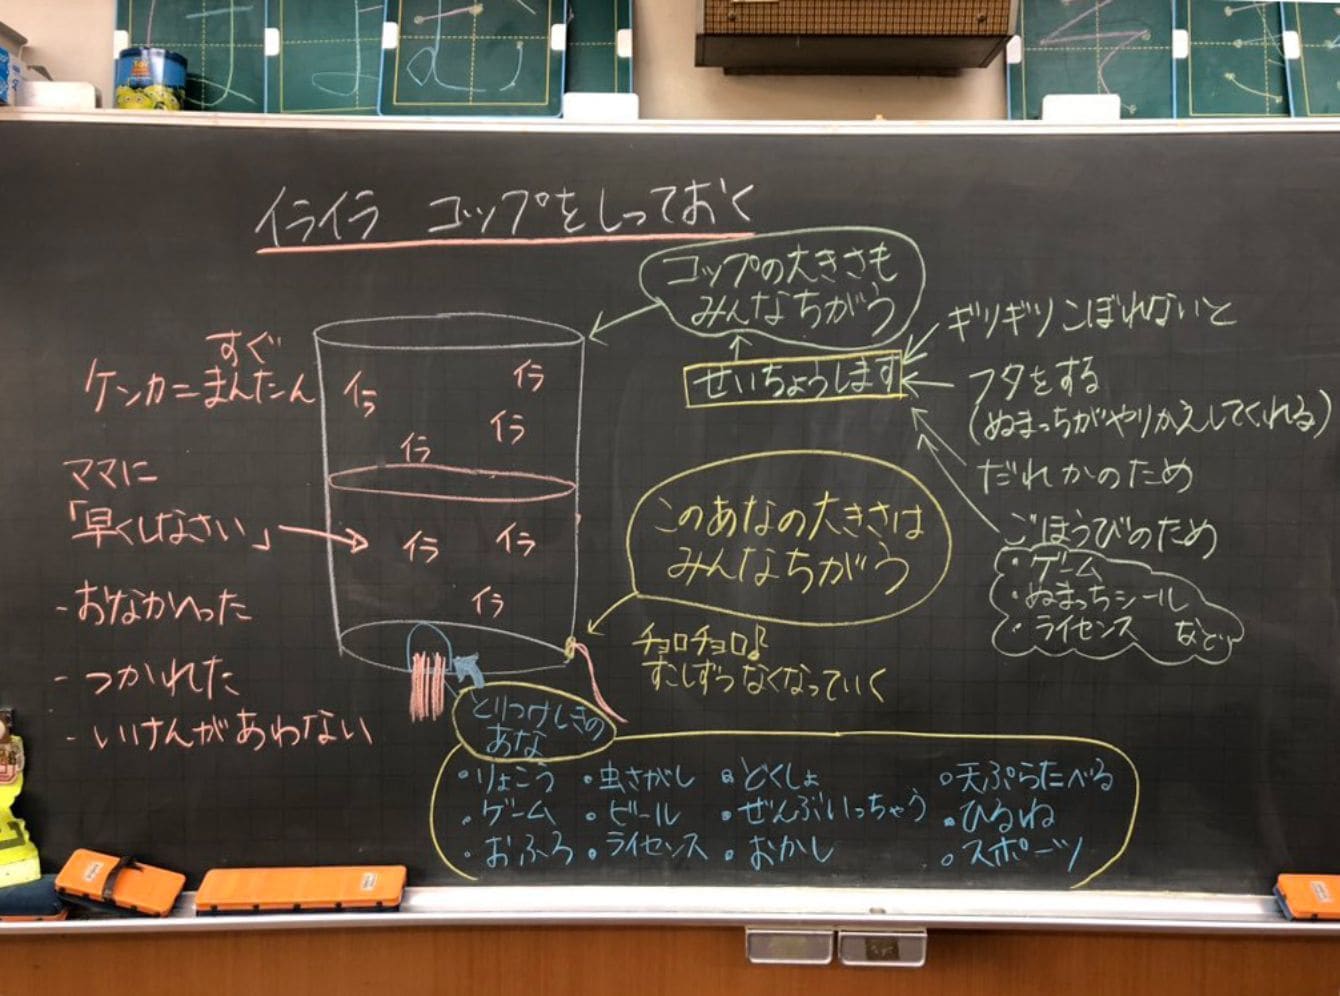 イライラ コップをしっておく
コップの大きさも
みんなちがう
せいちょうします
ギリギリこぼれないと
フタをする
(ぬまっちがやりかえしてくれる)
だれかのため
ごほうびのため
・ゲーム
・ぬまっちシール
・ライセンス など
すぐ
ケンカ=まんたん
ママに
「早くしなさい」
-おなかへった
-つかれた
-いけんがあわない
イラ
イラ
イラ
イラ
イラ
イラ
イラ
このあなの大きさは
みんなちがう
チョロチョロ♪
すこしずつなくなっていく
とりつけしきの
あな
・りょこう ・虫さがし ・どくしょ ・天ぷらたべる
・ゲーム ・ビール ・ぜんぶいっちゃう ・ひるね
・おふろ ・ライセンス ・おかし ・スポーツ